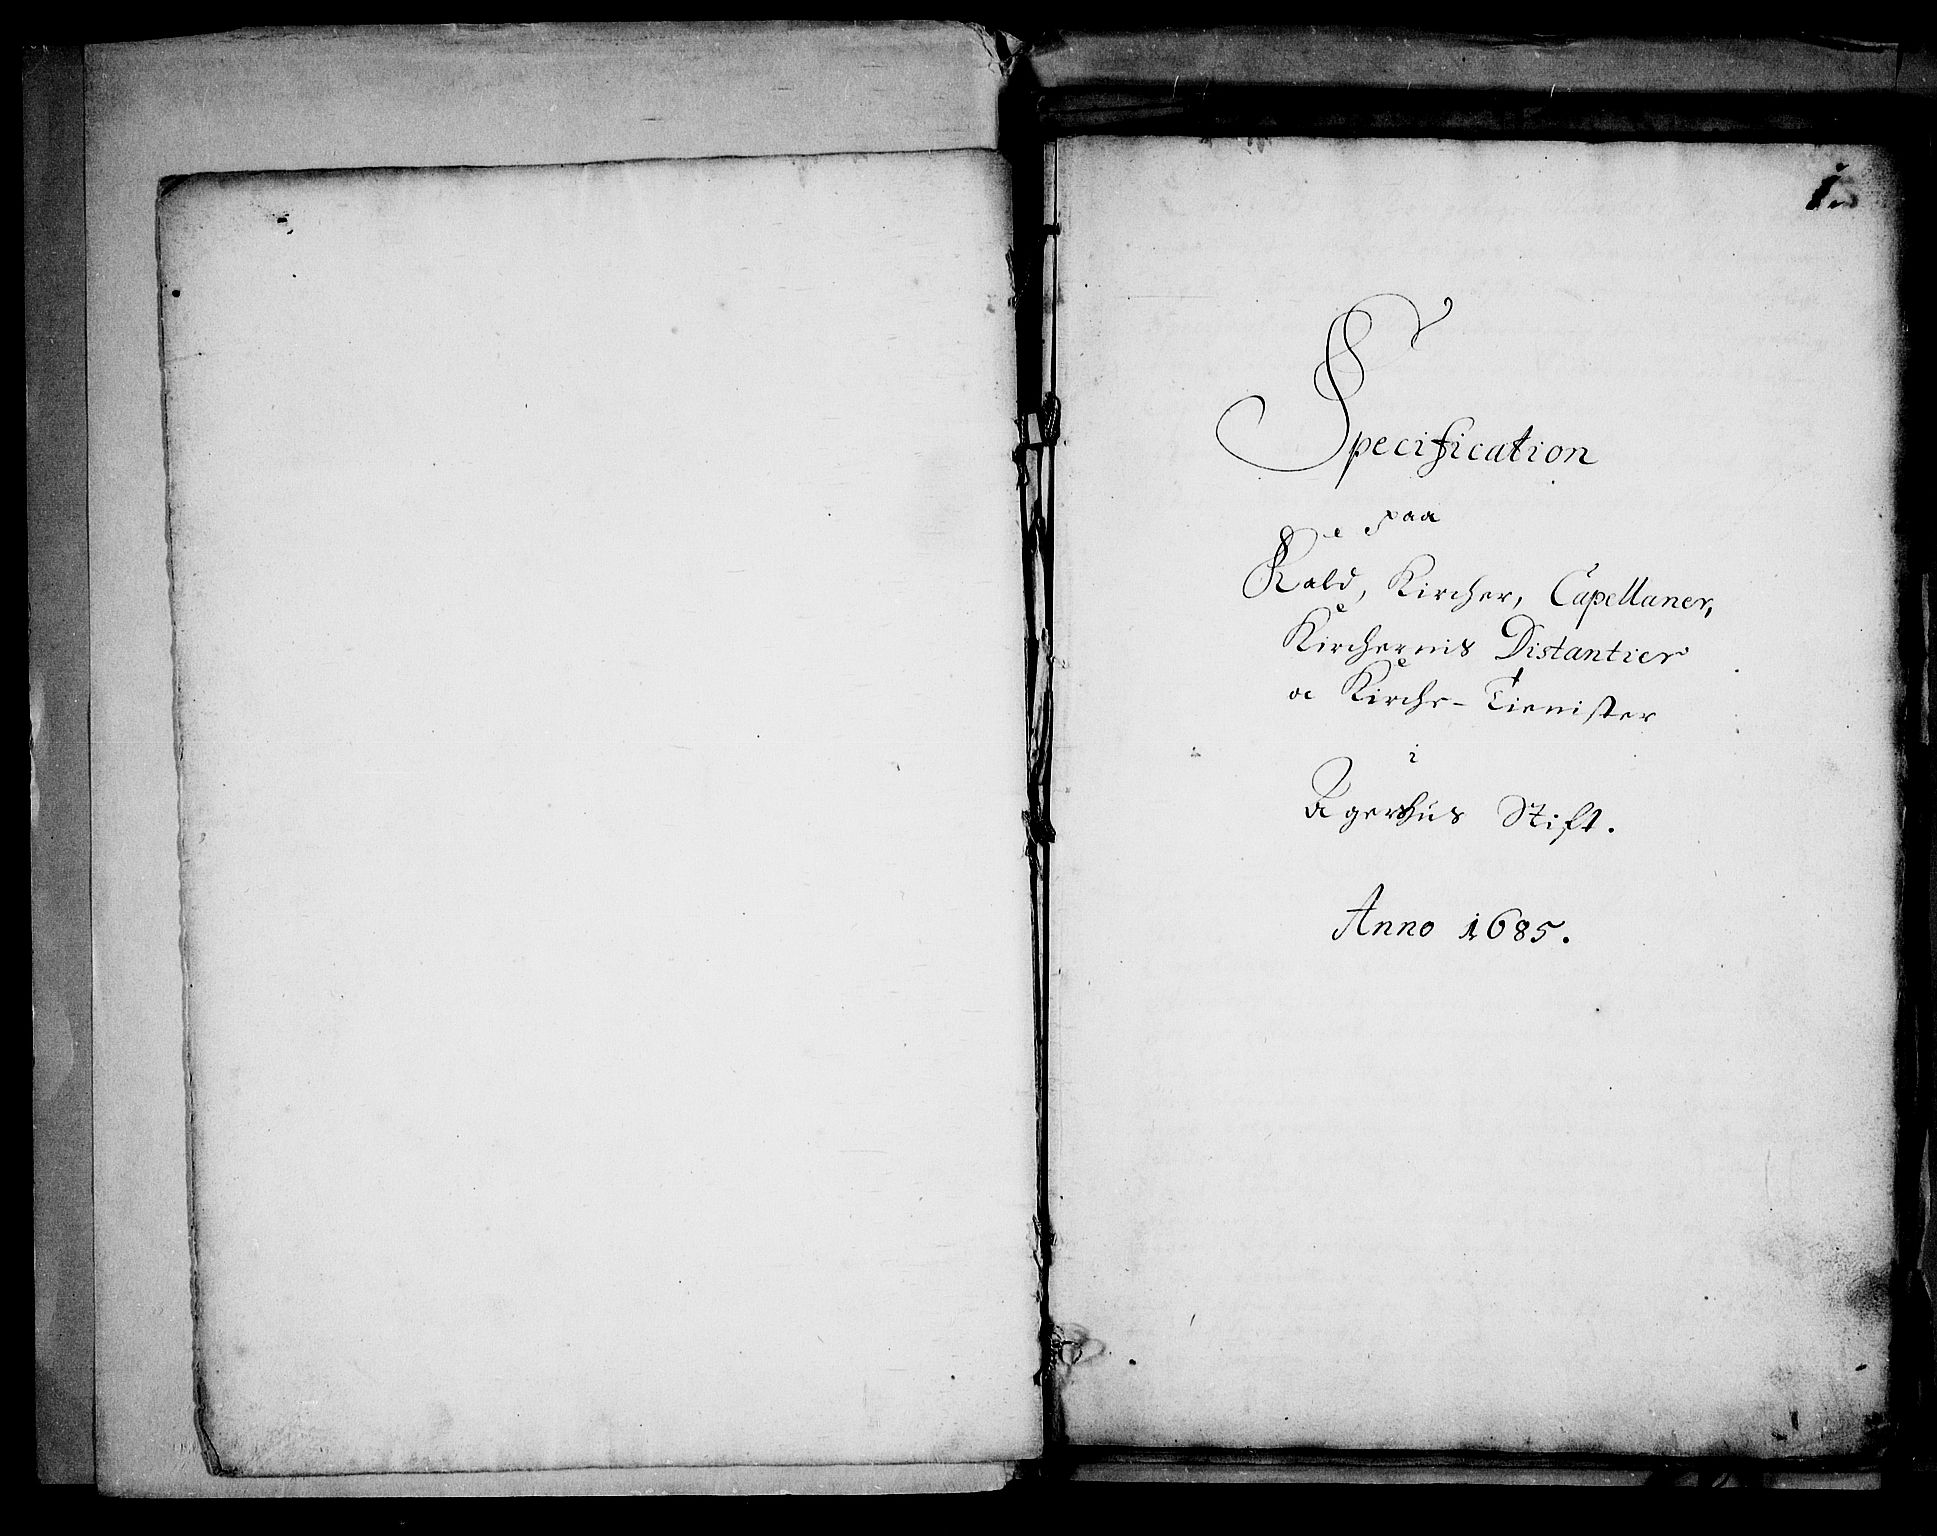 1.
Specification
paa
Kald, Kircher, Capellaner,
Kirchernis Distantier
oc Kirche-Tienister
i
Agershus Stift.
Anno 1685.